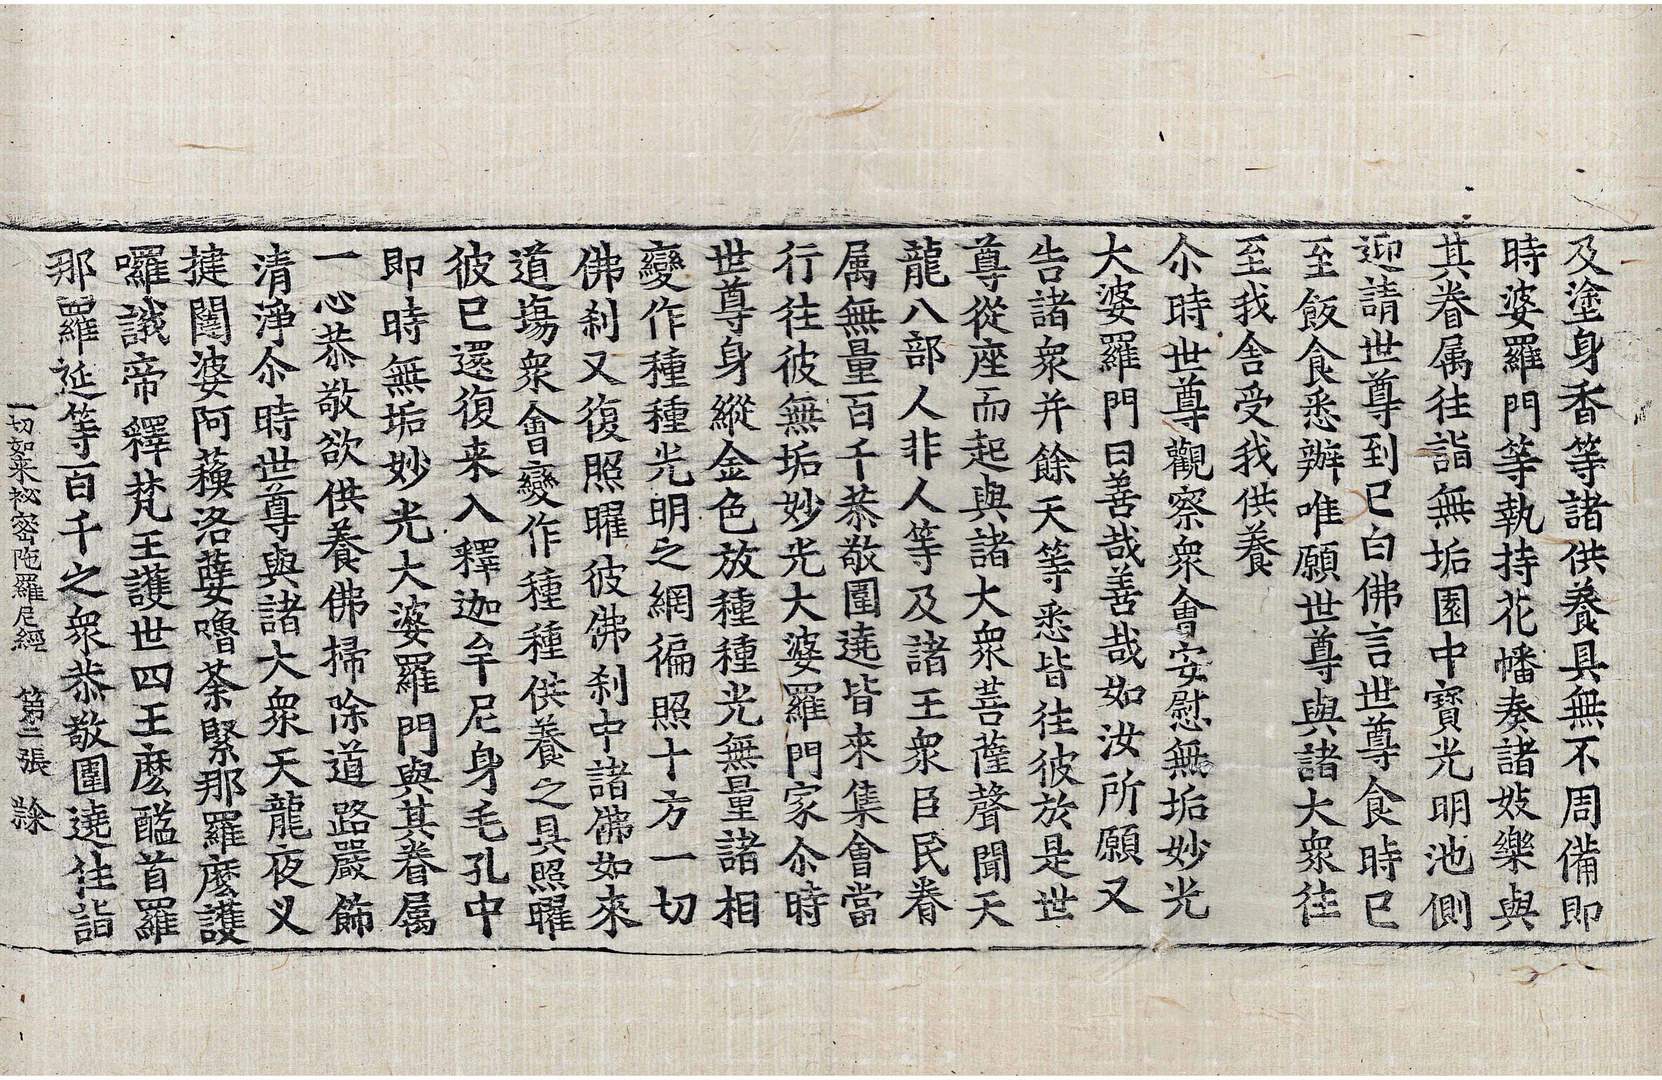 及塗身香等諸供養具無不周備即
時婆羅門等執持花幡奏諸妓樂與
其眷属往詣無垢園中寶光明池側
迎請世尊到已白佛言世尊食時已
至飯食悉辦唯願世尊與諸大衆往
至我舍受我供養
尒時世尊觀察衆會安慰無垢妙光
大婆羅門曰善哉善哉如汝所願又
告諸衆并餘天等悉皆往彼於是世
尊從座而起與諸大衆菩薩聲聞天
龍八部人非人等及諸王衆臣民眷
属無量百千恭敬圍遶皆來集會當
行往彼無垢妙光大婆羅門家尒時
世尊身縱金色放種種光無量諸相
變作種種光明之網徧照十方一切
佛刹又復照曜彼佛刹中諸佛如來
道場衆會變作種種供養之具照曜
彼已還復来入釋迦牟尼身毛孔中
即時無垢妙光大婆羅門與其眷属
一心恭敬欲供養佛掃除道路嚴飾
清淨尒時世尊與諸大衆天龍夜义
揵闥婆阿蘓洛蘗嚕荼緊那羅麽護
囉誐帝釋梵王護世四王麽醯首羅
那羅延等百千之衆恭敬圍遶往詣
一切如来祕密陁羅尼經 第二張 隸